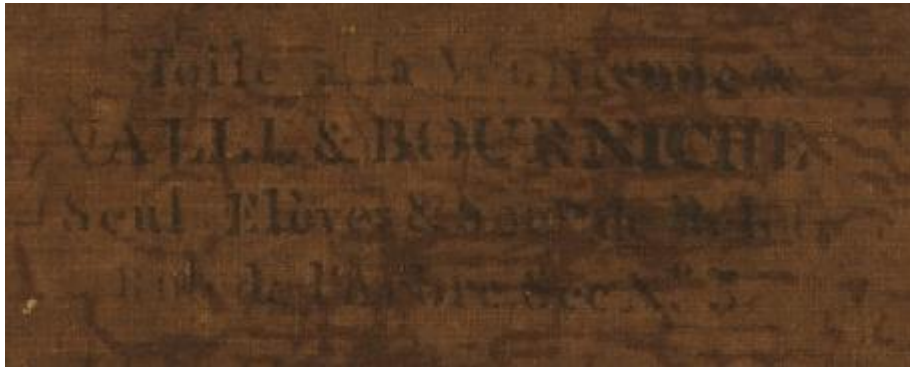 Toile à la Vénitienne
VALLÉ & BOURNICHE
Seul Elèves & Sucrs de
Rue de l'Arbre Sec N.° 3